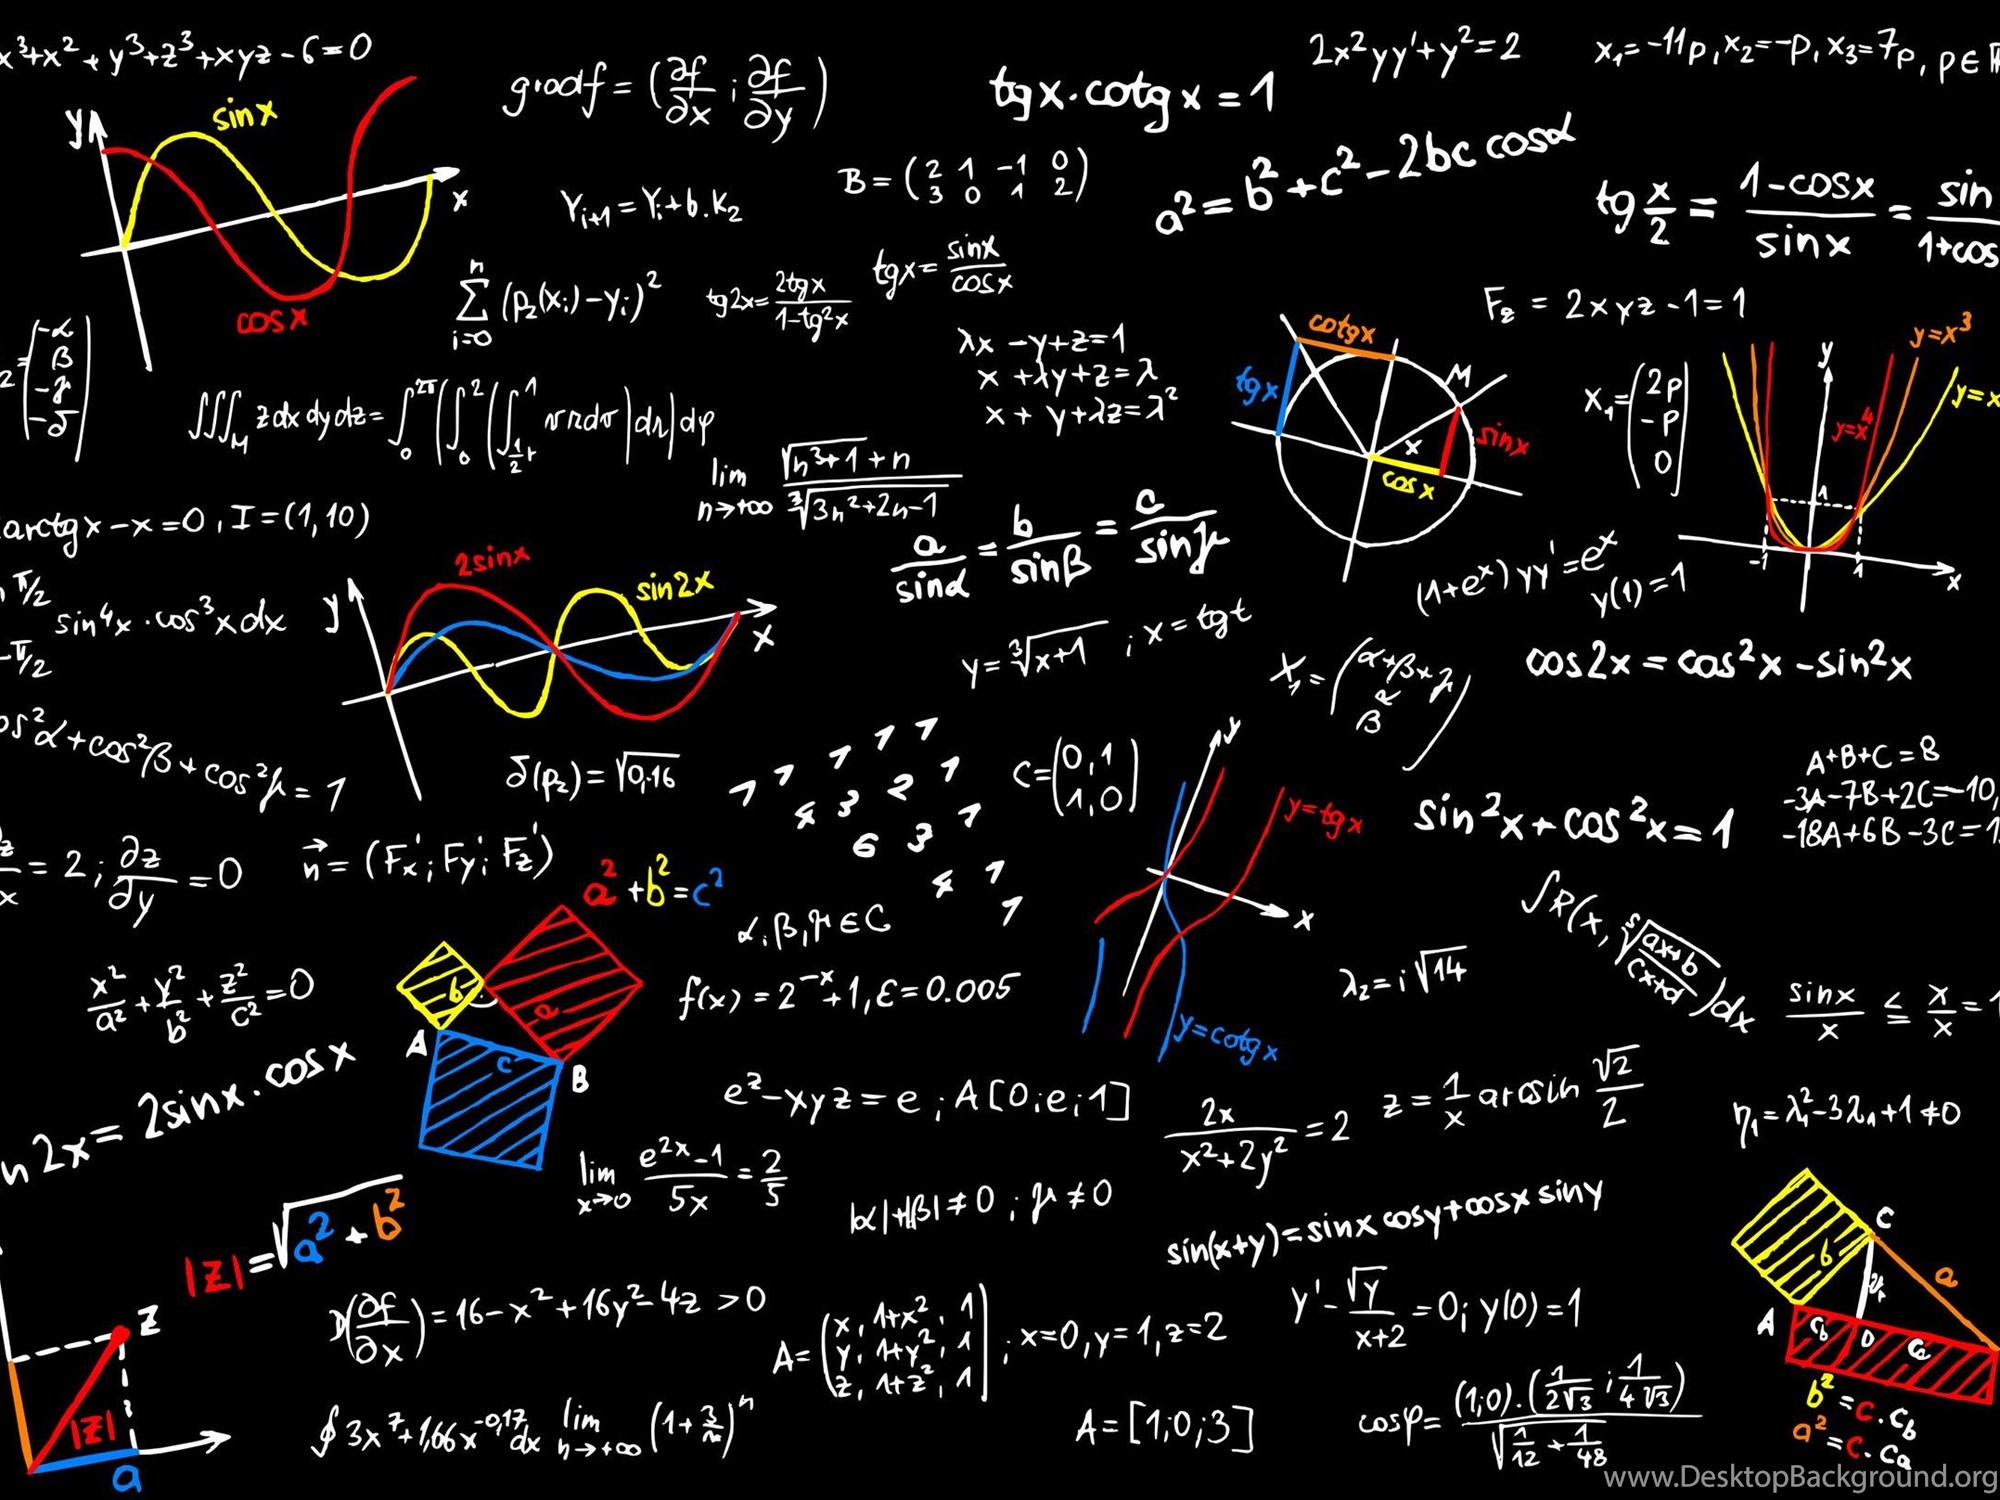 x³+x²+y³+z³+xyz-6=0
gradf = (∂f/∂x ; ∂f/∂y)
tgx·cotgx=1
2x²yy'+y²=2
x₁=-11p, x₂=-p, x₃=7p, p∈
y
sinx
x
cosx
Yᵢ₊₁=Yᵢ+b.K₂
B=(2 1 -1 0
3 0 1 2)
a²=b²+c²-2bc cosα
tg x/2 = (1-cosx)/sinx = sin/1+cos
∑ i=0 n (p₂(xᵢ)-yᵢ)²
tg2x=2tgx/(1-tg²x)
tgx=sinx/cosx
F₂ = 2xyz-1=1
(-α
β
-γ
-δ)
λx-y+z=1
x+λy+z=λ
x+y+λz=λ²
cotgx
tgx
M
x
sinx
cosx
X₁=(2p
-p
0)
y
y=x³
y=x⁴
y=x
1
-1
1
x
∭M z dx dy dz=
lim n→+∞ (√(n³+1)+n)/∛(3n²+2n-1)
arctgx-x=0, I=(1,10)
a/sinα = b/sinβ = c/sinγ
(1+eˣ)yy'=eˣ
y(1)=1
π/2
-π/2
sin⁴x·cos³xdx
y
2sinx
sin2x
x
y=∛(x+1) ; x=tgt
X₁=(α+β+γ
β)
cos2x=cos²x-sin²x
os²α+cos²β+cos²γ=1
δ(p₂)=√0,16
1 1 1 1 1
4 3 2 1
6 3 1
4 1
1
C=(0,1
1,0)
y
y=tgx
x
y=cotgx
sin²x+cos²x=1
A+B+C=8
-3A-7B+2C=-10,
-18A+6B-3C=1
=2; ∂z/∂y=0
n⃗=(Fx'; Fy'; Fz')
a²+b²=c²
b
a
A
c
B
α,β,γ∈C
∫R(x, ⁵√((ax+b)/(cx+d)))dx
x²/a²+y²/b²+z²/c²=0
f(x)=2⁻ˣ+1, ε=0.005
λ₂=i√14
sinx/x ≤ x/x = 1
n 2x=2sinx·cosx
eᶻ-xyz=e; A[0;e;1]
2x/(x²+2y²)=2
z=1/x arcsin √2/2
η₁=λ₁²-3λ₁+1≠0
lim x→0 (e²ˣ-1)/5x=2/5
|α|+|β|≠0 ; γ≠0
sin(x+y)=sinx cosy+cosx siny
|z|=√(a²+b²)
z
|z|
a
(∂f/∂x)=16-x²+16y²-4z>0
A=(x, 1+x², 1
y, 1+y², 1
z, 1+z², 1) ; x=0, y=1, z=2
y'-√y/(x+2)=0; y(0)=1
C
b
a
A
c_b
D
c_a
b²=c.c_b
a²=c.c_a
∮3x⁷+1,66x⁻⁰·¹⁷dx
lim n→+∞ (1+3/n)ⁿ
A=[1;0;3]
cosφ=(1;0).(1/(2√3); 1/(4√3))/√(1/12+1/48)
www.DesktopBackground.org